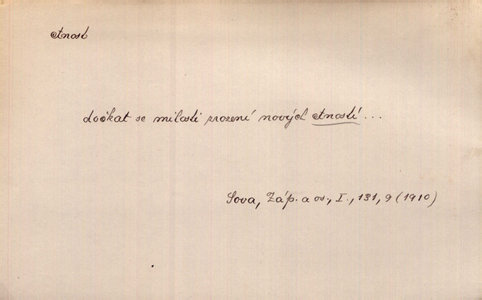 ctnost
dočkat se milosti zrození nových ctností...
Sova, Záp. a os., I., 131, 9 (1910)